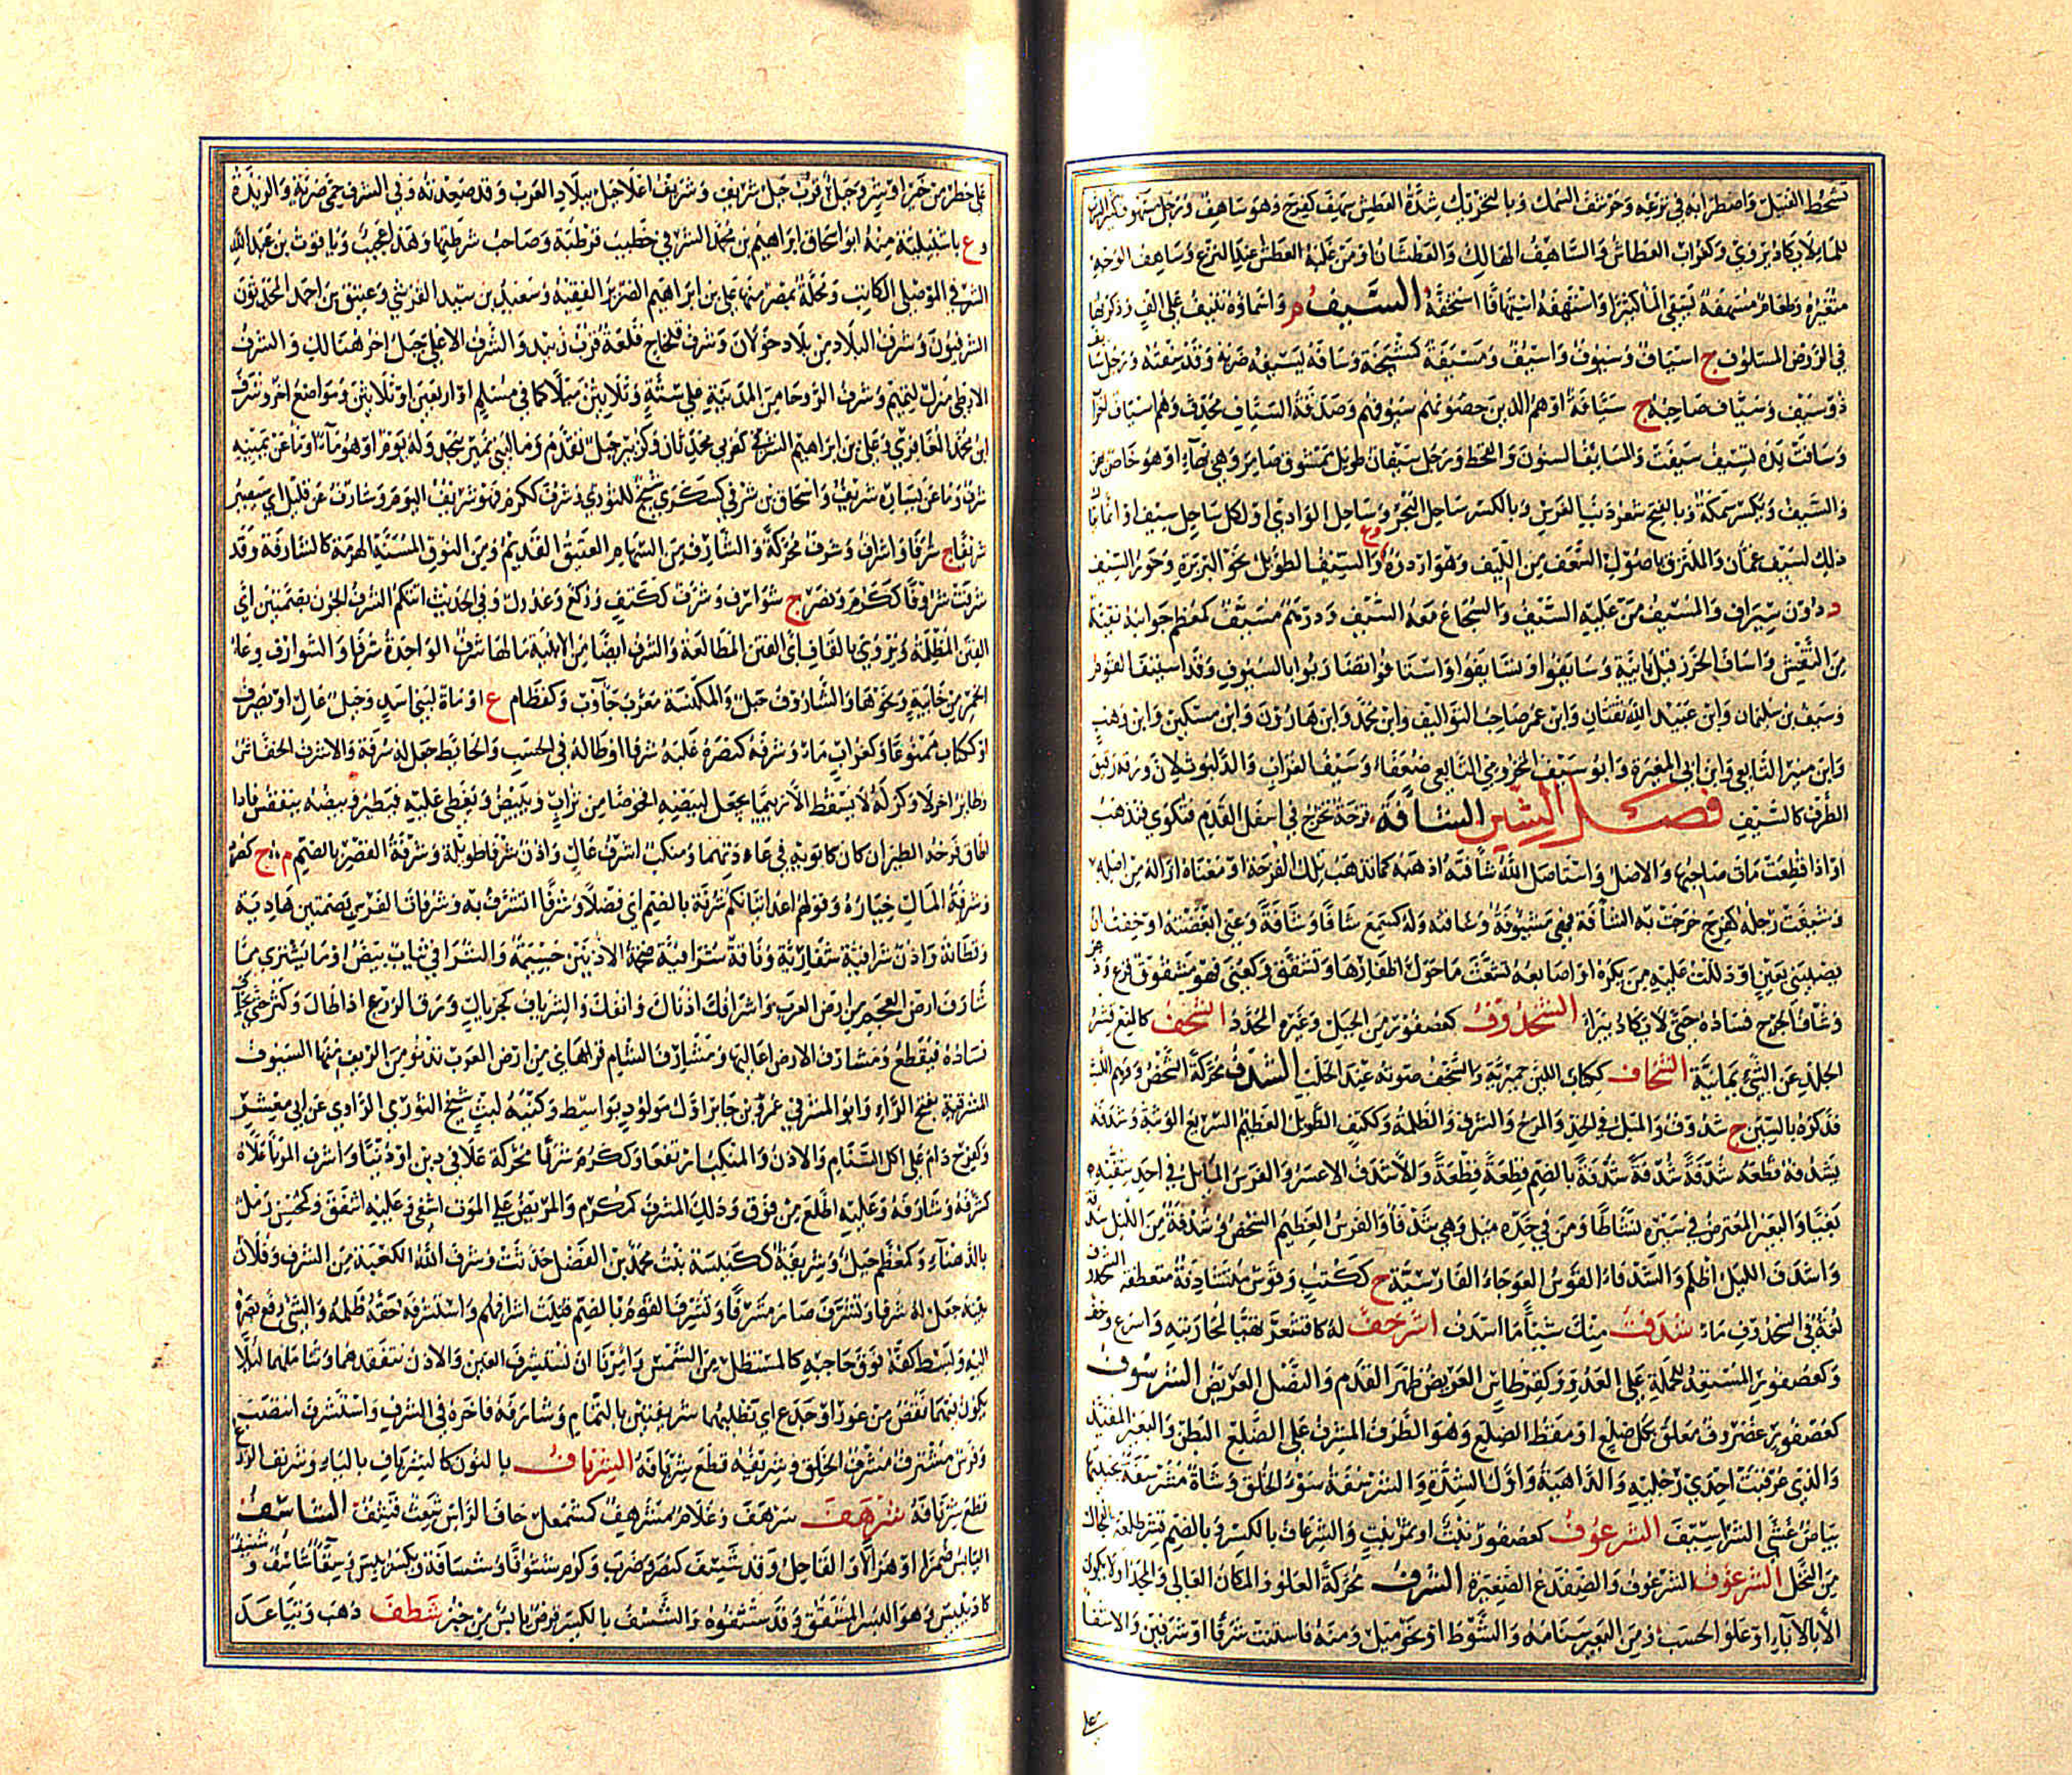 تشحط القتيل واضطرابه في نزعه وحرشف السمك وبالتحريك شدة العطش سهف كفرح وهو ساهف ورجل سهوف كثير الشرب
للماء لا يكاد يروى وكغراب العطاش والساهف الهالك والعطشان او من غلبه العطش عند النزع وساهف الوجه
متغيره وطعام مسهفة يسقى الماء كثيرا واستهفه استهافا استخفه السيف م واسماؤه تنيف على الف وذكرتها
في الروض المسلوف ج اسياف وسيوف واسيف ومسيفة كمشيخة وسافه يسيفه ضربه وقد سفته ورجل سائف
ذو سيف وسياف صاحبه ج سيافة او هم الذين حصونهم سيوفهم وصدقة السياف محدث وهم اسياف
وسافت يده تسيف سيفت والمسايف السنون والقحط ورجل سيفان طويل ممشوق ضامر وهي بهاء او هو خاص بهن
والسيف ويكسر سمكة وبالفتح شعر ذنب الفرس وبالكسر ساحل البحر وساحل الوادي او لكل ساحل سيف او انما يقال
ذلك لسيف عمان والملتزق باصول السعف من الليف وهو اردؤه وع والسيف الطويل نحو البربرة وخور السيف
د دون سيراف والمسيف من عليه السيف والشجاع معه السيف ودرهم مسيف كمعظم جوانبه نقية
من النقش واساف الخرز قيل يائية وسايفوا وتسايفوا واستافوا تضاربوا بالسيوف وقد استيف القوم
وسيف بن سليمان وابن عبيد الله ثقتان وابن عمر صاحب التواليف وابن محمد وابن هارون وابن مسكين وابن وهب
وابن منير التابعي وابن ابي المغيرة وابو سيف المخزومي التابعي ضعفاء وسيف الغراب والدلبوث لان ورقه دقيق
الطرف كالسيف فصل الشين الشافة قرحة تخرج في اسفل القدم فتكوى فتذهب
او اذا قطعت مات صاحبها والاصل واستاصل الله شافته اذهبه كما تذهب تلك القرحة او معناه ازاله من اصله
وشئفت رجله كفرح خرجت به الشافة فهي مشئوفة وشافه وله كسمع شافا وشافة وعنى ابغضته او خفت ان
يصيبني بعين او دللت عليه من يكره واصابعه تشعث ما حول اظفارها وتشقق وكعنى فهو مشئوف فزع وذعر
وشاف الجرح فساده حتى لا يكاد يبرا الشحدوف كعصفور من الجبل وغيره المحدد الشحف كالمنع قشر
الجلد عن الشيء يمانية الشخاف ككتاب اللبن حميرية والشخف صوته عند الحلب الشدف محركة الشخص ووهم الليث
فذكره بالسين ج شدوف والميل في الخد والمرح والشرف والظلمة وككتف الطويل العظيم السريع الوثبة وشدفه
يشدفه قطعه شدفة شدفة شدفة بالضم قطعة قطعة والاشدف الاعسر والفرس المائل في احد شقيه
بغيا والبعير المعترض في سيره نشاطا ومن في خده ميل وهي شدفاء والفرس العظيم الشخص وشدفة من الليل شدفة
واشدف الليل اظلم والشدفاء القوس العوجاء الفارسية ج ككتب وقوس متشادفة متعطفة الشحذوف
لغة في الشحدوف ماء شذفت منك شيئا ما اشذف اشرحف له كاقشعر تهيا لمحاربته واسرع وخف
وكعصفور المستعد للحملة على العدو وكقرطاس العريض ظهر القدم والنصل العريض الشرسوف
كعصفور غضروف معلق بكل ضلع او مقط الضلع وهو الطرف المشرف على البطن والبعير المقيد
والذي عرقبت احدى رجليه والداهية واول الشدة والشرسفة سوء الخلق وشاة مشرسفة بجنبيها
بياض غشى الشراسيف الشرعوف كعصفور نبت او ثمر نبت والشرعاف بالكسر وبالضم قشر طلعة الفحال
من النخل الشرغوف الشرعوف والضفدع الصغيرة الشرف محركة العلو والمكان العالي والمجد او لا يكون
الا بالاباء او علو الحسب ومن البعير سنامه والشوط او نحو ميل ومنه فاستنت شرفا او شرفين والاشفاء
على
على خطر من خير او شر وجبل قرب جبل شريف وشريف اعلى جبل ببلاد العرب وقد صعدته وفي الشرف حمى ضرية والربذة
وع باشبيلية منه ابو اسحاق ابراهيم بن محمد الشرفي خطيب قرطبة وصاحب شرطتها وهذا عجيب وياقوت بن عبد الله
الشرفي الموصلي الكاتب ومحلة بمصر منها علي بن ابراهيم الضرير الفقيه وسعيد بن سيد القرشي وعتيق بن احمد المحدثون
الشرفيون وشرف البلاد من بلاد خولان وشرف قلحاح قلعة قرب زبيد والشرف الاعلى جبل اخر هنالك والشرف
الارطى منزل لتميم وشرف الروحاء من المدينة على ستة وثلاثين ميلا كما في مسلم او اربعين او ثلاثين ومواضع اخر وشرف
ابن محمد المعافري وعلي بن ابراهيم الشرفي كعربي محدثان وكزبير جبل تقدم وماء لبني نمير بنجد وله يوم او هو ماء او ما عن يمينه
شرف وما عن يساره شريف واسحاق بن شرفى كسكرى شيخ للثوري وشرف ككرم فهو شريف اليوم وشارف عن قليل اي سيصير
شريفا ج شرفاء واشراف وشرف محركة والشارف من السهام العتيق القديم ومن النوق المسنة الهرمة كالشارفة وقد
شرفت شروفا ككرم ونصر ج شوارف وشرف ككتب وركع وعدول وفي الحديث اتتكم الشرف الجون بضمتين اي
الفتن المظلمة ويروى بالقاف اي الفتن الطالعة والشرف ايضا من الابنية مالها شرف الواحدة شرفاء والشوارف وعاء
الخمر من خابية ونحوها والشاروف جبل والمكنسة معرب جاروب وكقطام ع او ماء لبني اسد وجبل عال او يصرف
او ككتاب ممنوعا وكغراب ماء وشرفه كنصره غلبه شرفا او طاله في الحسب والحائط جعل له شرفة والاشرف الخفاش
وطائر اخر لا وكر له لا يسقط الا ريثما يجعل لبيضه افحوصا من تراب ويبيض ويغطى عليه فيطير وبيضه يتفقس فاذا
اطاق فرخه الطيران كان كابويه في عادتهما ومنكب اشرف عال واذن شرفاء طويلة وشرفة القصر بالضم م ج كصرد
وشرفة المال خياره وقولهم اعد اتيانكم شرفة بالضم اي فضلا وشرفا اتشرف به وشرفات الفرس بضمتين هاديه
وقطاته واذن شرافية شفارية وناقة شرافية ضخمة الاذنين جسيمة والشرافي ثياب بيض او ما يشترى مما
شارف ارض العجم من ارض العرب واشرافك اذناك وانفك والشرياف كجريال ورق الزرع اذا طال وكثر حتى يخاف
فساده فيقطع ومشارف الارض اعاليها ومشارف الشام قرى من ارض العرب تدنو من الريف منها السيوف
المشرفية بفتح الراء وابو المشرفي عمرو بن جابر اول مولود بواسط وكنية ليث شيخ الثوري الراوي عن ابي معشر
وكفرح دام على اكل السنام والاذن والمنكب ارتفعا وككرم شرفا محركة علا في دين او دنيا واشرف المربا علاه
كشرفه وشارفه وعليه اطلع من فوق وذلك المشرف كمكرم والمريض على الموت اشفى وعليه اشفق وكمحسن رمل
بالدهناء وكمعظم جبل وشريفة كسفينة بنت محمد بن الفضل حدثت وشرف الله الكعبة من الشرف وفلان
بيته جعل له شرفا وتشرف صار مشرفا وتشرف القوم بالضم قتلت اشرافهم واستشرفه حقه ظلمه والشيء رفع بصره
اليه وبسط كفه فوق حاجبه كالمستظل من الشمس وامرنا ان نستشرف العين والاذن نتفقدهما ونتاملهما لئلا
يكون بهما نقص من عور او جدع اي نطلبهما شريفتين بالتمام وشارفه فاخره في الشرف واستشرف انتصب
وفرس مشترف مشرف الخلق وشريفته قطع شريافه الشرناف بالنون كالشرياف بالياء وشرنف الزرع
قطع شرنافه شرهف سرهف وغلام مشرهف كمشمعل حاف الراس شعث قشف الشاسف
اليابس ضمرا او هزالا والقاحل وقد شسف كنصر وضرب وكرم شسوفا وشسافة ويكسر يبس وسقاء شاسف وشسيف
كاد ييبس وهو البسر المشقق وقد شسفوه والشسف بالكسر قرص يابس من خبز شطف ذهب وتباعد